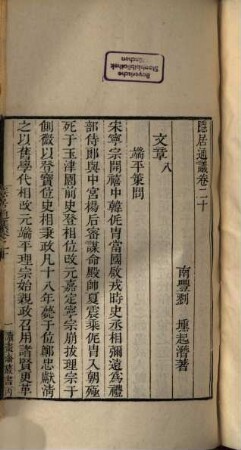 Bayerische
Staatsbibliothek
München
隱居通議卷二十
南豐劉 壎起潛著
文章八
端平策問
宋寧宗開禧中韓侂胄當國啟戎時史丞相彌遠為禮
部侍郎與中宮楊后審謀命殿帥夏震乘侂胄入朝殛
死于玉津園前史登相位改元嘉定寧宗崩扳理宗于
側微以登寶位史相秉政凡十八年薨于位鄭忠獻清
之以舊學代相改元端平理宗始親政召用諸賢更革